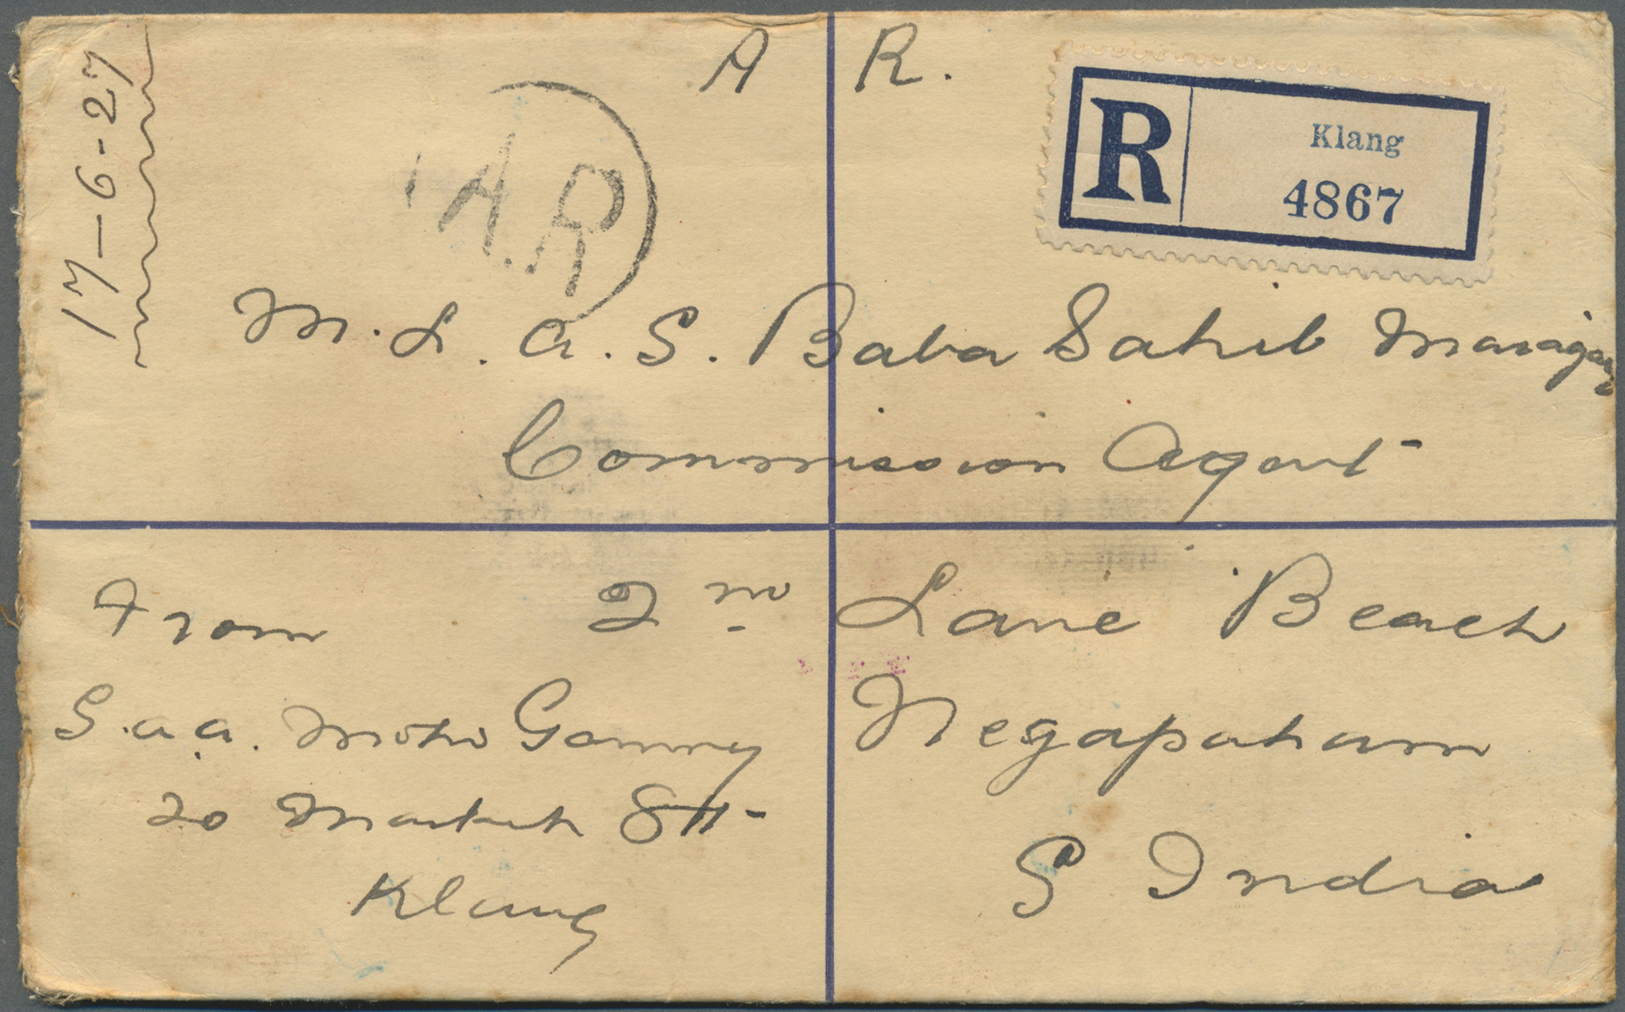 17-6-27
A R.
A.R
R Klang
4867
M. L. A. S. Baba Sahib
Commission Agent
2 Lane Beach
Negapatam
S India
From
S. a. a.
20 Market St.
Klang